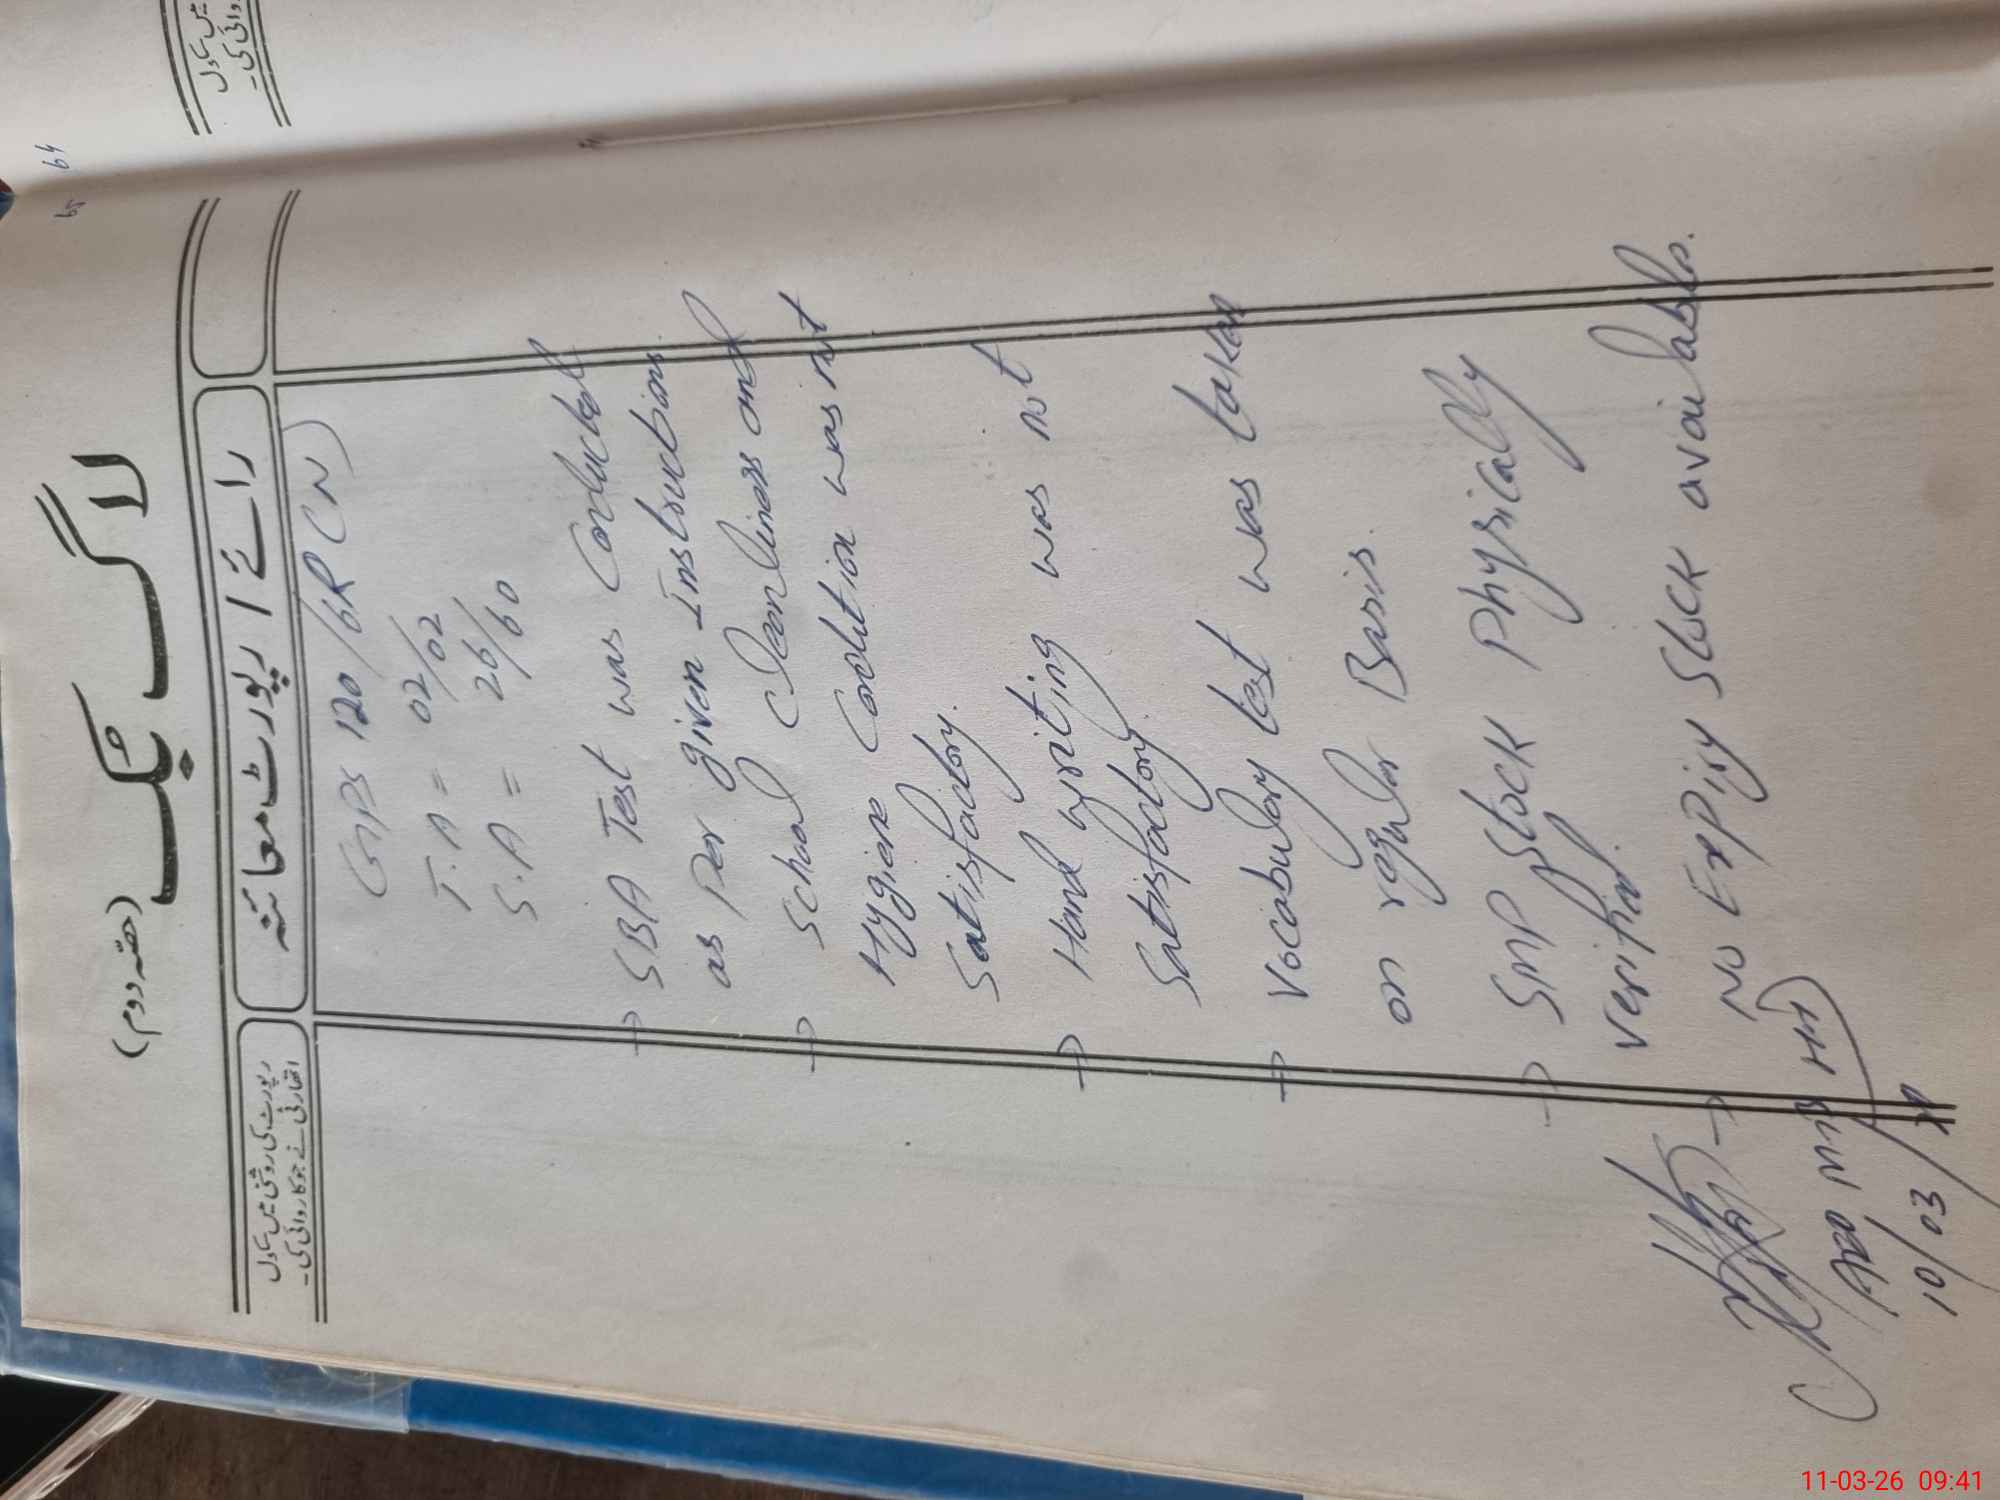 65 64
لاگ بک
(حصہ دوم)
رائے / رپورٹ معائنہ
رپورٹ کی روشنی میں سکول
اتھارٹی نے جو کارروائی کی۔
میں سکول
روائی کی۔
GMPS 120/6R (N)
T.A = 02/02
S.A = 26/60
→ SBA Test was Conducted
as Per given Instructions.
→ School Cleanliness and
Hygiene Condition was not
Satisfactory.
→ Hand writing was not
Satisfactory
→ Vocabulary test was taken
on regular Basis.
→ SMP Stock Physically
verified.
→ No Expiry Stock available.
10/03/
11-03-26 09:41